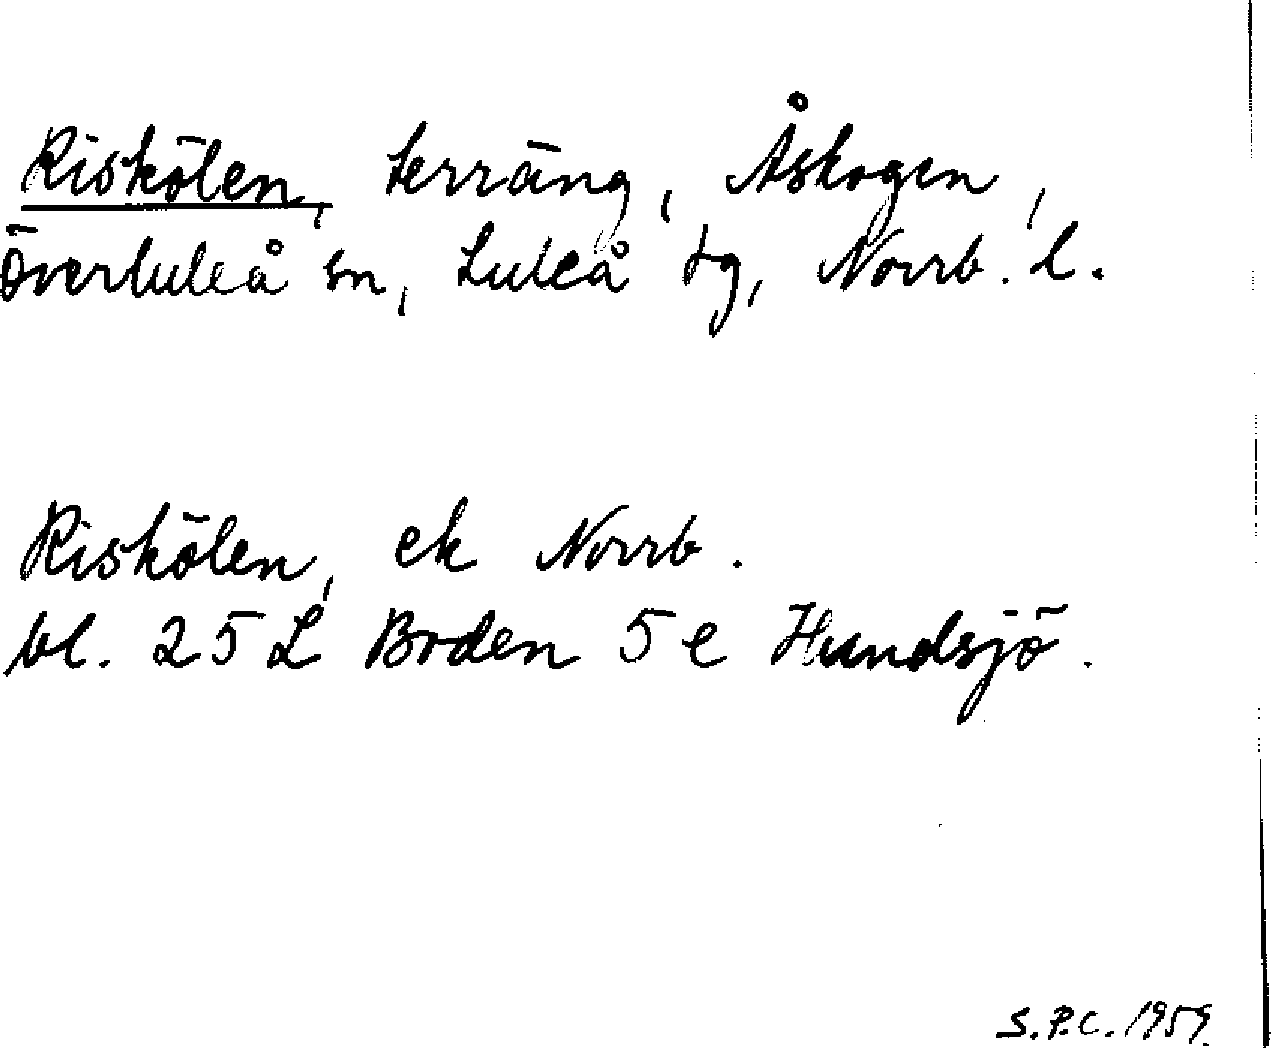 Riskölen, terräng, Åskogen,
Överluleå sn, Luleå tg, Norrb. l.
Riskölen, ek Norrb.
bl. 25 L Boden 5 e Hundsjö.
S.P.C. 1959.